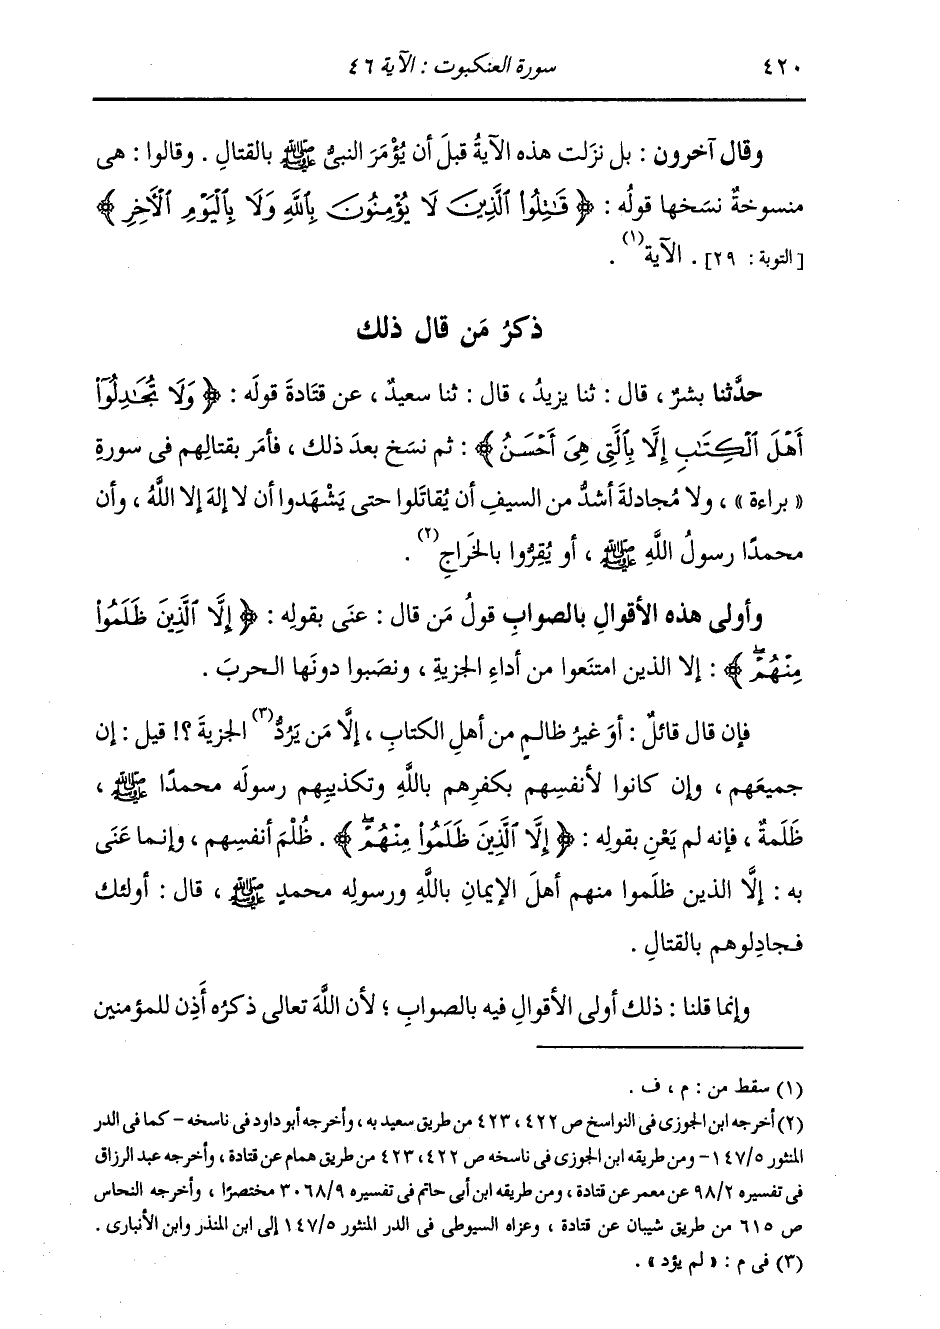 ٤٢٠ سورة العنكبوت : الآية ٤٦
وقال آخرون : بل نزَلت هذه الآيةُ قبلَ أن يُؤْمَرَ النبىُّ ﷺ بالقتالِ . وقالوا : هى
منسوخةٌ نسَخها قولُه : ﴿ قَـٰتِلُوا۟ ٱلَّذِينَ لَا يُؤْمِنُونَ بِٱللَّهِ وَلَا بِٱلْيَوْمِ ٱلْـَٔاخِرِ ﴾
[ التوبة : ٢٩] . الآية(١) .
ذكرُ مَن قال ذلك
حدَّثنا بشرٌ ، قال : ثنا يزيدُ ، قال : ثنا سعيدٌ ، عن قتَادةَ قولَه : ﴿ وَلَا تُجَـٰدِلُوٓا۟
أَهْلَ ٱلْكِتَـٰبِ إِلَّا بِٱلَّتِى هِىَ أَحْسَنُ ﴾ : ثم نسَخ بعدَ ذلك ، فأمَر بقتالِهم فى سورةِ
« براءة » ، ولا مُجادلةَ أشدُّ من السيفِ أن يُقاتَلوا حتى يَشْهَدوا أن لا إلهَ إلا اللَّهُ ، وأن
محمدًا رسولُ اللَّهِ ﷺ ، أو يُقِرُّوا بالخَراجِ(٢) .
وأولى هذه الأقوالِ بالصوابِ قولُ مَن قال : عنَى بقولِه : ﴿ إِلَّا ٱلَّذِينَ ظَلَمُوا۟
مِنْهُمْۖ ﴾ : إلا الذين امتنَعوا من أداءِ الجزيةِ ، ونصَبوا دونَها الحربَ .
فإن قال قائلٌ : أوَ غيرُ ظالمٍ من أهلِ الكتابِ ، إلَّا مَن يَرُدُّ(٣) الجزيةَ ؟! قيل : إن
جميعَهم ، وإن كانوا لأنفسِهم بكفرِهم باللَّهِ وتكذيبِهم رسولَه محمدًا ﷺ ،
ظَلَمةٌ ، فإنه لم يَعْنِ بقولِه : ﴿ إِلَّا ٱلَّذِينَ ظَلَمُوا۟ مِنْهُمْۖ ﴾ . ظُلْمَ أنفسِهم ، وإنما عَنَى
به : إلَّا الذين ظلَموا منهم أهلَ الإيمانِ باللَّهِ ورسولِه محمدٍ ﷺ ، قال : أولئك
فجادِلوهم بالقتالِ .
وإنما قلنا : ذلك أولى الأقوالِ فيه بالصوابِ ؛ لأن اللَّهَ تعالى ذكرُه أَذِن للمؤمنين
(١) سقط من : م ، ف .
(٢) أخرجه ابن الجوزى فى النواسخ ص ٤٢٢ ، ٤٢٣ من طريق سعيد به ، وأخرجه أبو داود فى ناسخه – كما فى الدر
المنثور ١٤٧/٥ – ومن طريقه ابن الجوزى فى ناسخه ص ٤٢٢ ، ٤٢٣ من طريق همام عن قتادة ، وأخرجه عبد الرزاق
فى تفسيره ٩٨/٢ عن معمر عن قتادة ، ومن طريقه ابن أبى حاتم فى تفسيره ٣٠٦٨/٩ مختصرًا ، وأخرجه النحاس
ص ٦١٥ من طريق شيبان عن قتادة ، وعزاه السيوطى فى الدر المنثور ١٤٧/٥ إلى ابن المنذر وابن الأنبارى .
(٣) فى م : « لم يؤد » .